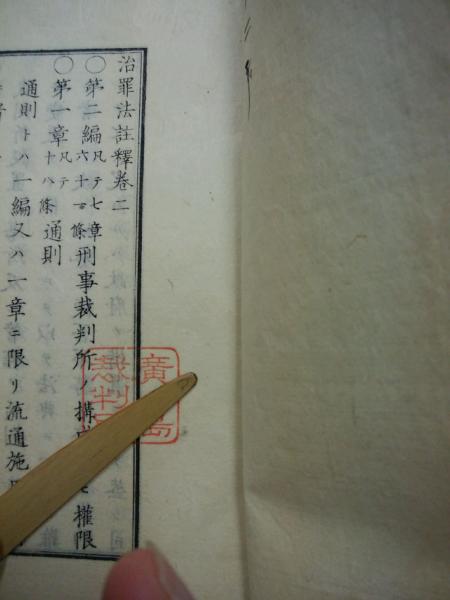 治罪法註釋卷二
〇第二編凡テ七章六十條刑事裁判所ノ搆權限
〇第一章凡テ十八條通則
通則トハ一編又ハ一章ニ限リ流通施
廣島
裁判